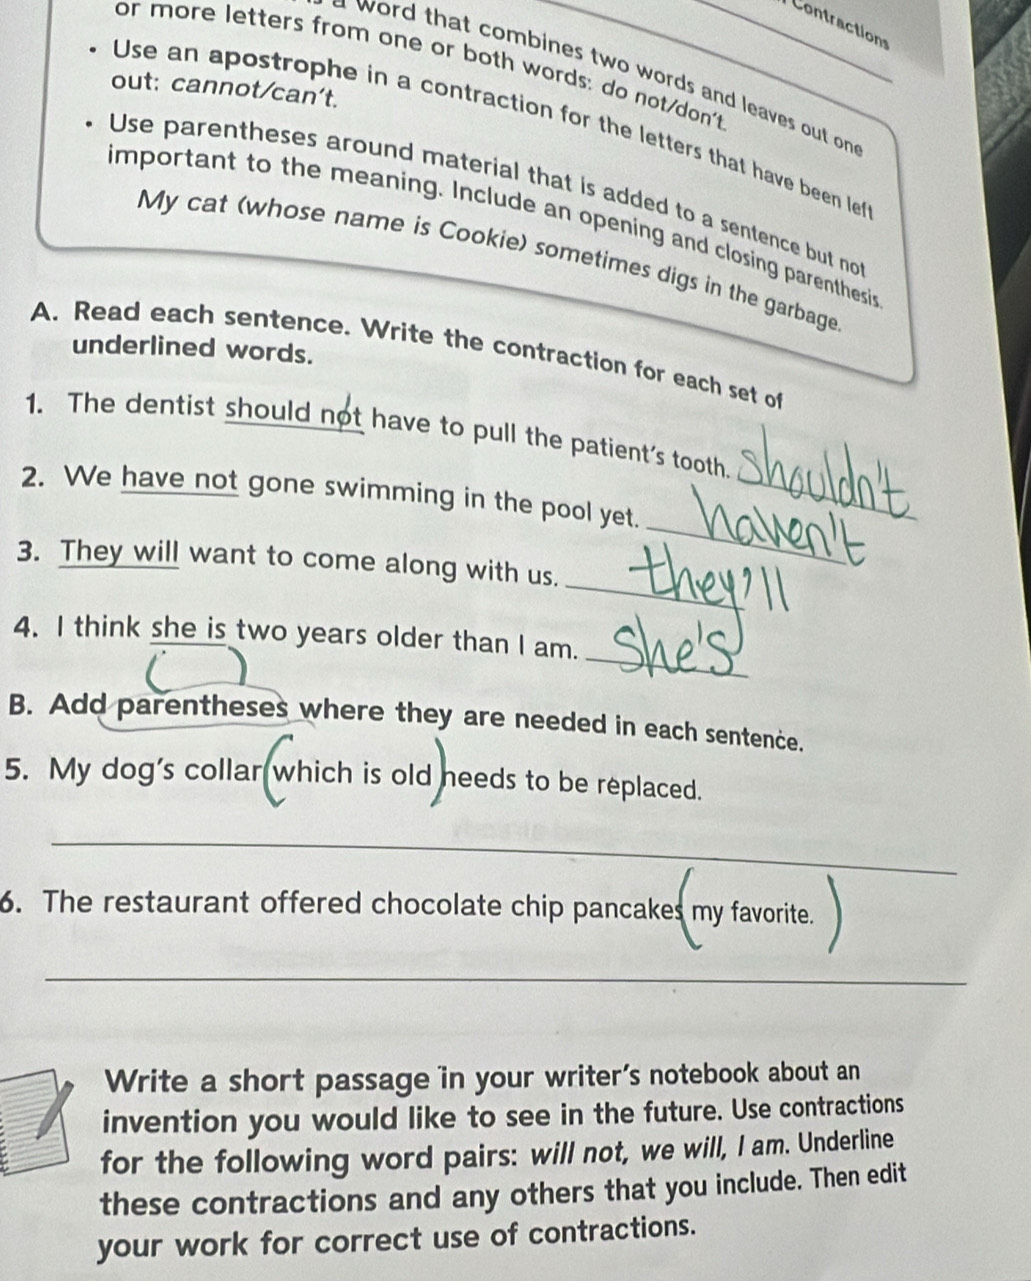 Contractions
a word that combines two words and leaves out one
or more letters from one or both words: do not/don't.
• Use an apostrophe in a contraction for the letters that have been left
out: cannot/can't.
• Use parentheses around material that is added to a sentence but not
important to the meaning. Include an opening and closing parenthesis.
My cat (whose name is Cookie) sometimes digs in the garbage.
A. Read each sentence. Write the contraction for each set of
underlined words.
1. The dentist should not have to pull the patient's tooth. Shouldn't
2. We have not gone swimming in the pool yet. haven't
3. They will want to come along with us. they'll
4. I think she is two years older than I am. She's
( )
B. Add parentheses where they are needed in each sentence.
5. My dog's collar (which is old) needs to be replaced.
6. The restaurant offered chocolate chip pancakes (my favorite.)
Write a short passage in your writer's notebook about an
invention you would like to see in the future. Use contractions
for the following word pairs: will not, we will, I am. Underline
these contractions and any others that you include. Then edit
your work for correct use of contractions.